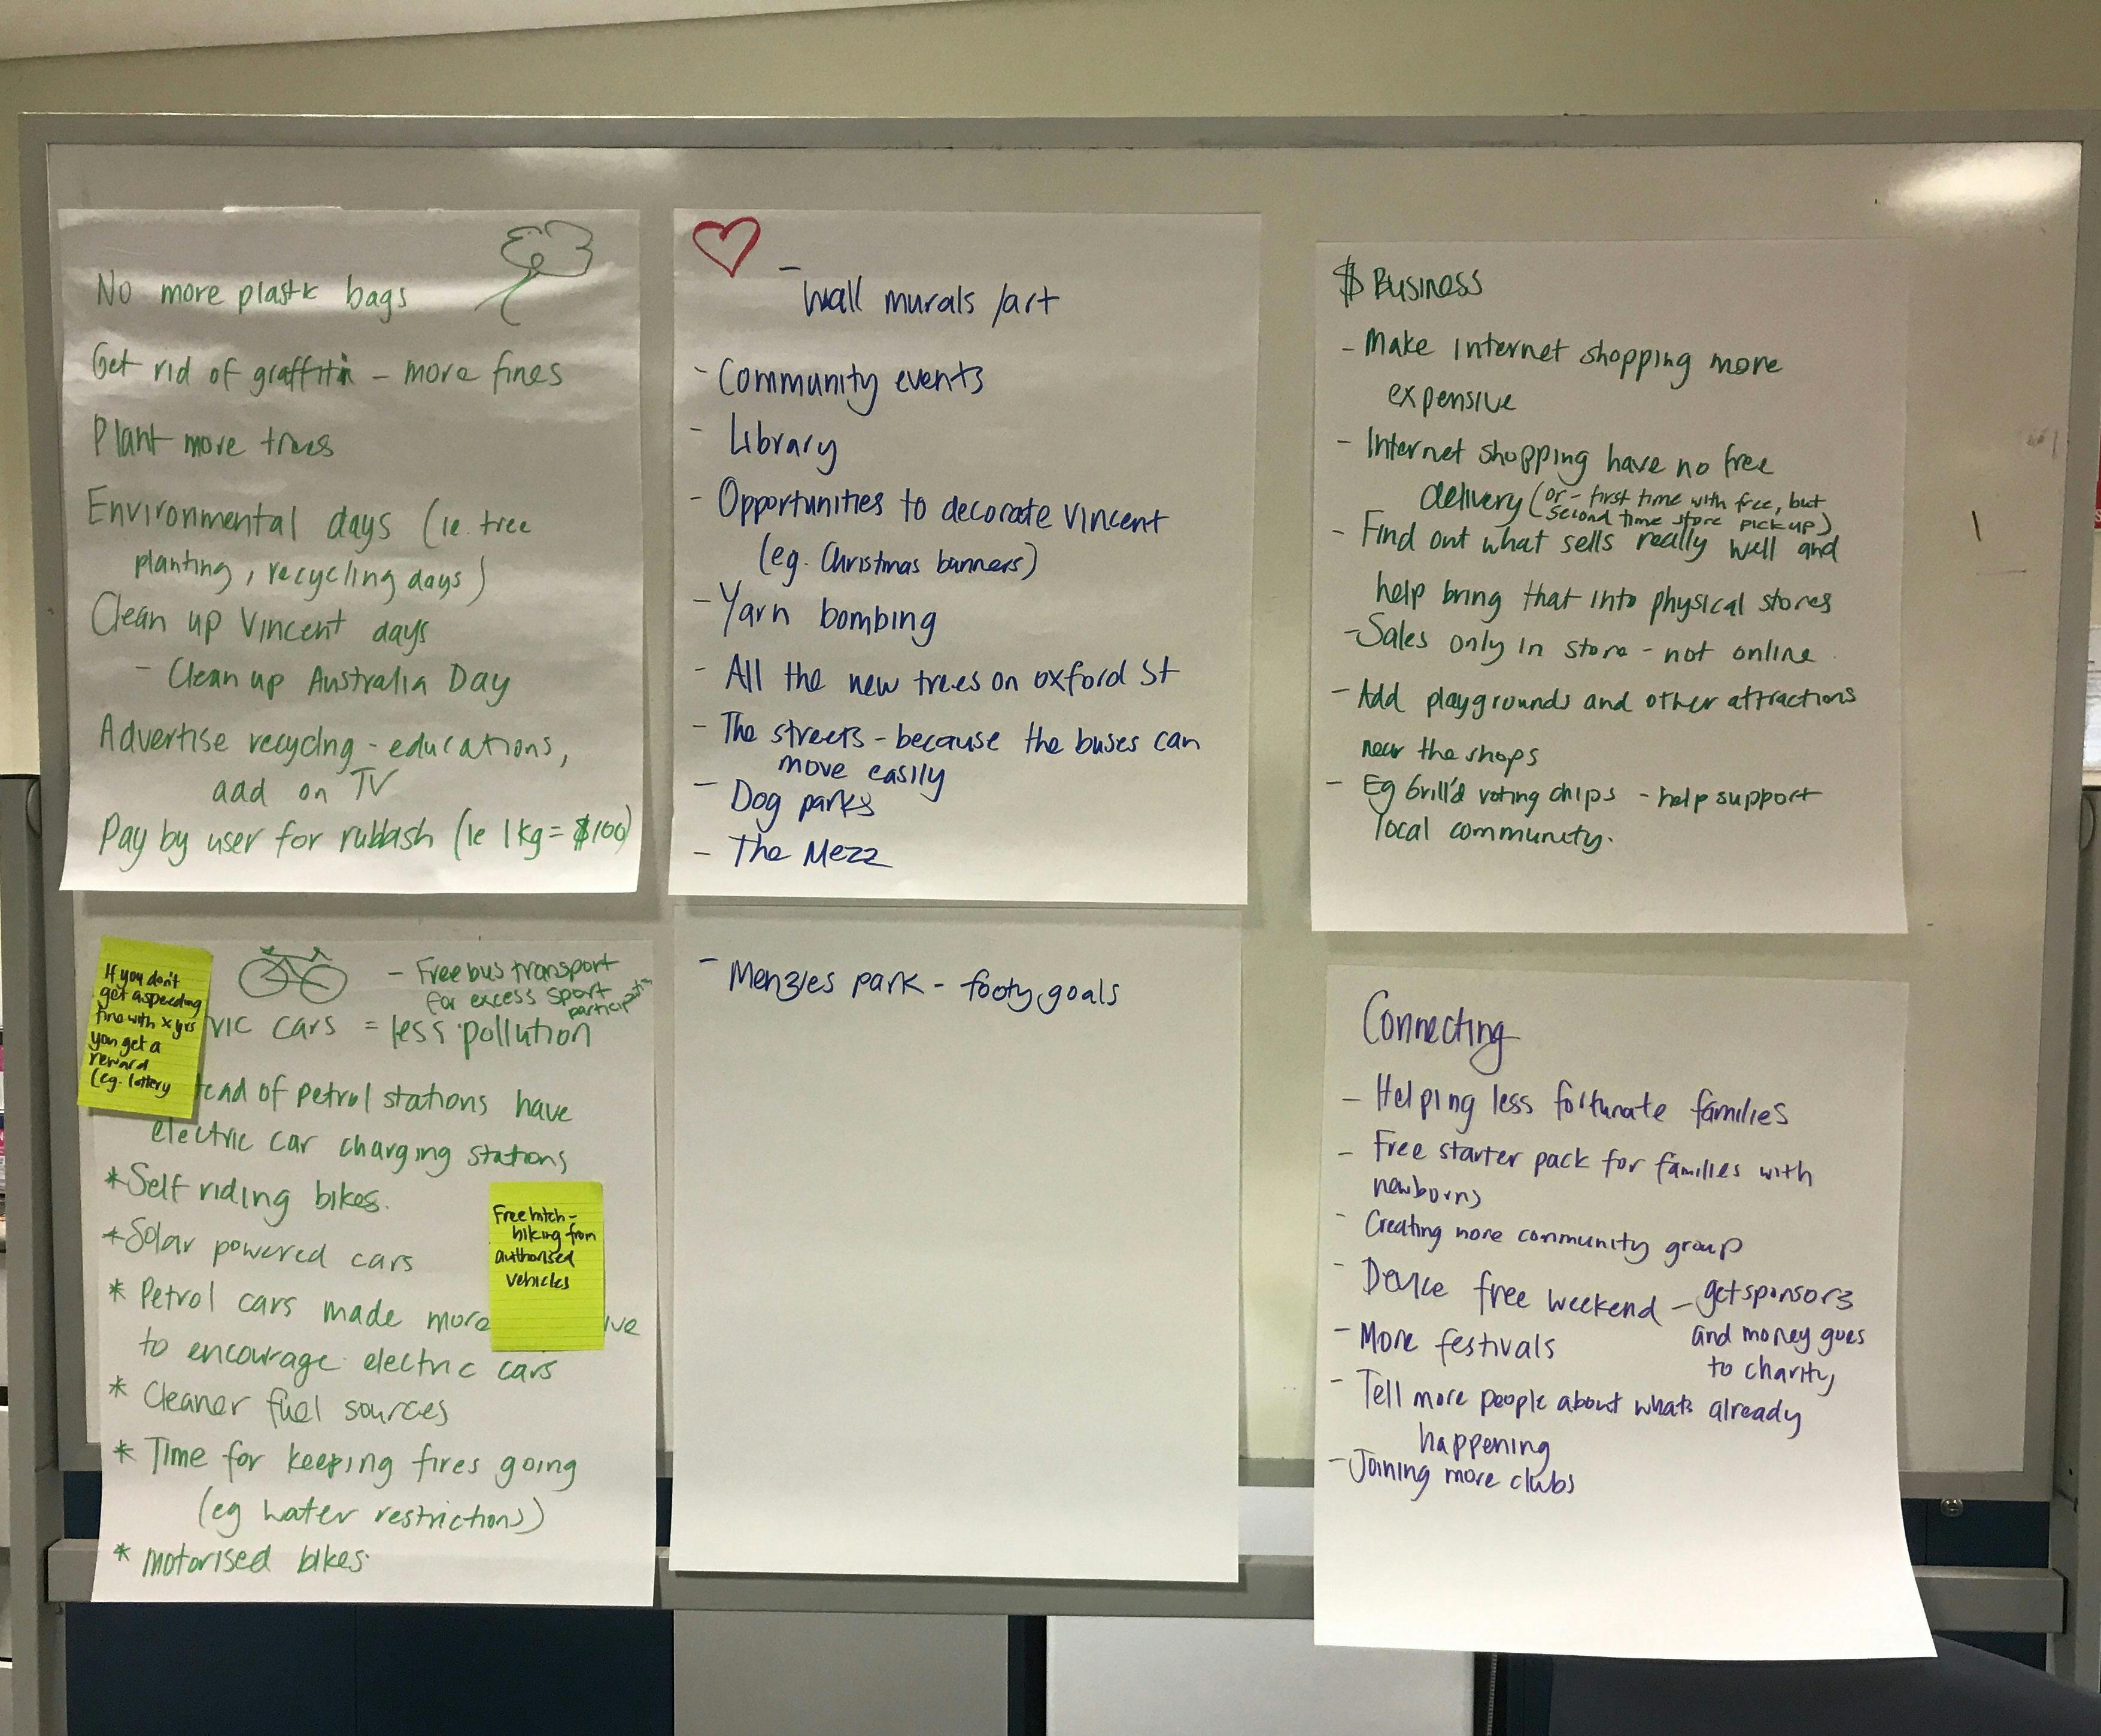 No more plastic bags
Get rid of graffiti - more fines
Plant more trees
Environmental days (ie. tree
planting, recycling days)
Clean up Vincent days
- Clean up Australia Day
Advertise recyclng - educations,
add on TV
Pay by user for rubbish (ie 1kg = $100)
- Wall murals /art
- Community events
- Library
- Opportunities to decorate Vincent
(eg. Christmas banners)
- Yarn bombing
- All the new trees on oxford St
- The streets - because the buses can
move easily
- Dog parks
- The Mezz
$ Business
- Make Internet shopping more
expensive
- Internet shopping have no free
delivery (or - first time with free, but
second time store pick up)
- Find out what sells really well and
help bring that into physical stores
- Sales only in store - not online
- Add playgrounds and other attractions
near the shops
- Eg Grill'd voting chips - help support
local community.
If you don't
get a speeding
fine with x yrs
you get a
reward
(eg. lottery
- Free bus transport
for excess sport
participation
ric cars = less pollution
tead of petrol stations have
electric car charging stations
* Self riding bikes.
* Solar powered cars
* Petrol cars made more ive
to encourage electric cars
* Cleaner fuel sources
* Time for keeping fires going
(eg water restrictions)
* motorised bikes
Free hitch-
hiking from
authorised
vehicles
- Menzies park - footy goals
Connecting
- Helping less fortunate families
- Free starter pack for families with
newborns
- Creating more community group
- Device free weekend - get sponsors
and money goes
to charity
- More festivals
- Tell more people about whats already
happening
- Joining more clubs